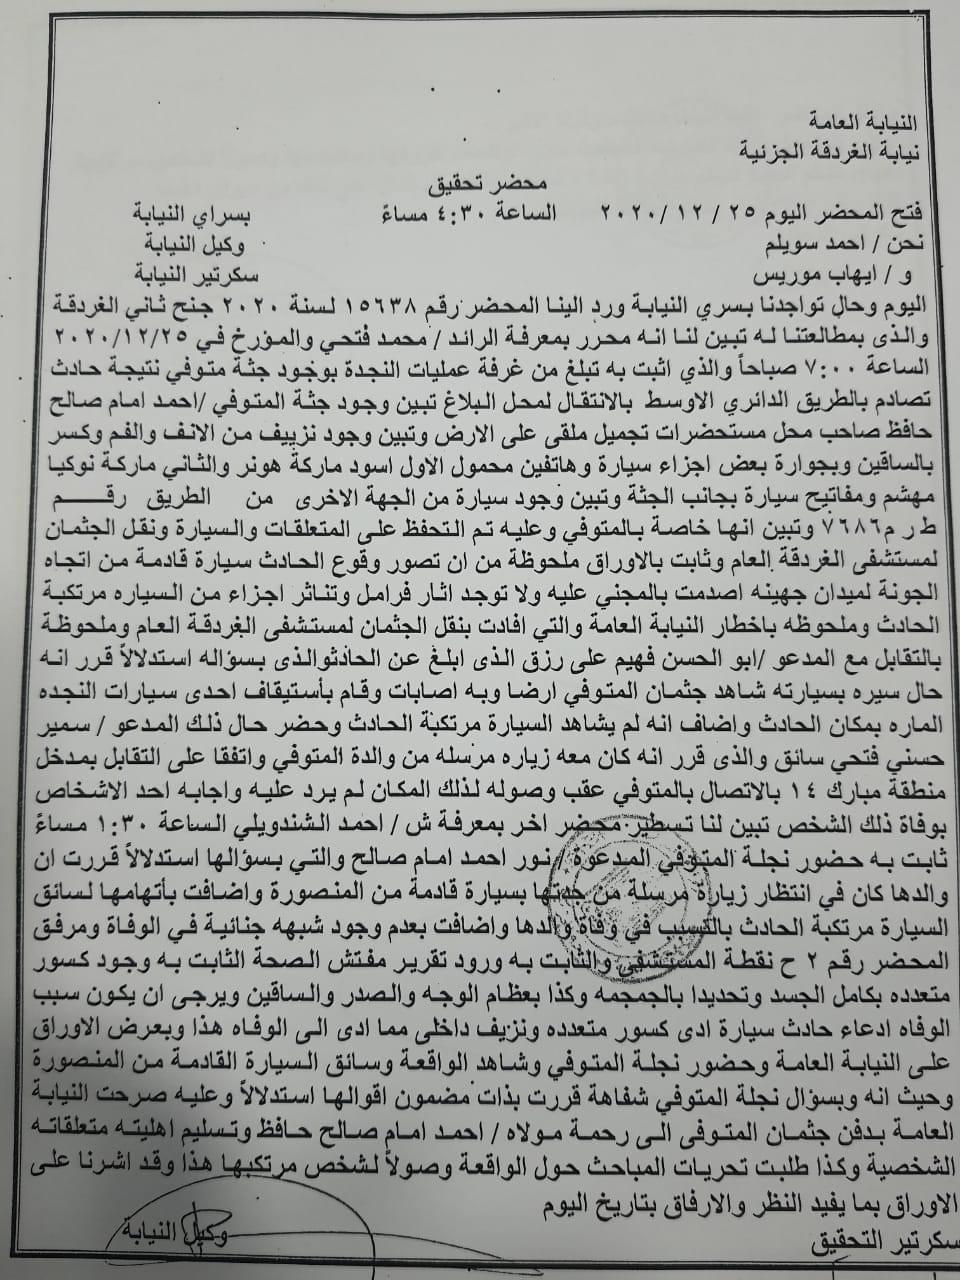 النيابة العامة
نيابة الغردقة الجزئية
محضر تحقيق
فتح المحضر اليوم ٢٥ / ١٢ /٢٠٢٠ الساعة ٤:٣٠ مساءً بسراي النيابة
نحن / احمد سويلم وكيل النيابة
و / ايهاب موريس سكرتير النيابة
اليوم وحال تواجدنا بسري النيابة ورد الينا المحضر رقم ١٥٦٣٨ لسنة ٢٠٢٠ جنح ثاني الغردقة
والذى بمطالعتنا له تبين لنا انه محرر بمعرفة الرائد / محمد فتحي والمؤرخ في ٢٠٢٠/١٢/٢٥
الساعة ٧:٠٠ صباحاً والذي اثبت به تبلغ من غرفة عمليات النجدة بوجود جثة متوفي نتيجة حادث
تصادم بالطريق الدائري الاوسط بالانتقال لمحل البلاغ تبين وجود جثة المتوفي /احمد امام صالح
حافظ صاحب محل مستحضرات تجميل ملقى على الارض وتبين وجود نزييف من الانف والفم وكسر
بالساقين وبجوارة بعض اجزاء سيارة وهاتفين محمول الاول اسود ماركة هونر والثاني ماركة نوكيا
مهشم ومفاتيح سيارة بجانب الجثة وتبين وجود سيارة من الجهة الاخرى من الطريق رقـــــم
ط ر م٧٦٨٦ وتبين انها خاصة بالمتوفي وعليه تم التحفظ على المتعلقات والسيارة ونقل الجثمان
لمستشفى الغردقة العام وثابت بالاوراق ملحوظة من ان تصور وقوع الحادث سيارة قادمة من اتجاه
الجونة لميدان جهينه اصدمت بالمجني عليه ولا توجد اثار فرامل وتناثر اجزاء من السياره مرتكبة
الحادث وملحوظه باخطار النيابة العامة والتي افادت بنقل الجثمان لمستشفى الغردقة العام وملحوظة
بالتقابل مع المدعو /ابو الحسن فهيم على رزق الذى ابلغ عن الحادثوالذى بسؤاله استدلالاً قرر انه
حال سيره بسيارته شاهد جثمان المتوفي ارضا وبه اصابات وقام بأستيقاف احدى سيارات النجده
الماره بمكان الحادث واضاف انه لم يشاهد السيارة مرتكبة الحادث وحضر حال ذلك المدعو / سمير
حسني فتحي سائق والذى قرر انه كان معه زياره مرسله من والدة المتوفي واتفقا على التقابل بمدخل
منطقة مبارك ١٤ بالاتصال بالمتوفي عقب وصوله لذلك المكان لم يرد عليه واجابه احد الاشخاص
بوفاة ذلك الشخص تبين لنا تسطير محضر اخر بمعرفة ش / احمد الشندويلي الساعة ١:٣٠ مساءً
ثابت به حضور نجلة المتوفي المدعوة / نور احمد امام صالح والتي بسؤالها استدلالاً قررت ان
والدها كان في انتظار زيارة مرسلة من جدتها بسيارة قادمة من المنصورة واضافت بأتهامها لسائق
السيارة مرتكبة الحادث بالتسبب في وفاة والدها واضافت بعدم وجود شبهه جنائية في الوفاة ومرفق
المحضر رقم ٢ ح نقطة المستشفي والثابت به ورود تقرير مفتش الصحة الثابت به وجود كسور
متعدده بكامل الجسد وتحديدا بالجمجمه وكذا بعظام الوجه والصدر والساقين ويرجى ان يكون سبب
الوفاه ادعاء حادث سيارة ادى كسور متعدده ونزيف داخلى مما ادى الى الوفاه هذا وبعرض الاوراق
على النيابة العامة وحضور نجلة المتوفي وشاهد الواقعة وسائق السيارة القادمة من المنصورة
وحيث انه وبسؤال نجلة المتوفي شفاهة قررت بذات مضمون اقوالها استدلالاً وعليه صرحت النيابة
العامة بدفن جثمان المتوفى الى رحمة مولاه / احمد امام صالح حافظ وتسليم اهليته متعلقاته
الشخصية وكذا طلبت تحريات المباحث حول الواقعة وصولاً لشخص مرتكبها هذا وقد اشرنا على
الاوراق بما يفيد النظر والارفاق بتاريخ اليوم
سكرتير التحقيق وكيل النيابة